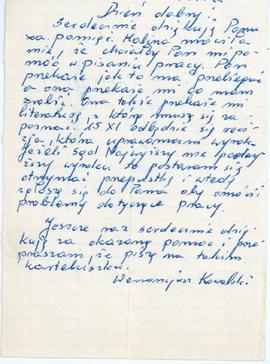 Dzień dobry.
Serdecznie dziękuję Panu
za pamięć. Halina mówiła
mi, że chciałby Pan mi po-
móc w pisaniu pracy. Pan
przekaże jak to ma przebiegać
a ona przekaże mi co mam
zrobić. Ona także przekaże mi
literaturę, z którą muszę się za-
poznać. 15 XI odbędzie się
która uprawomocni wyrok.
Jeżeli Sąd Najwyższy nie podwy-
ższy wyroku. To postaram się
otrzymać przepustkę i wtedy
zgłoszę się do Pana aby omówić
problemy dotyczące pracy.
Jeszcze raz serdecznie dzię-
kuję za okazaną pomoc i prze-
praszam, że piszę na takim
karteluszku.
Kowalski